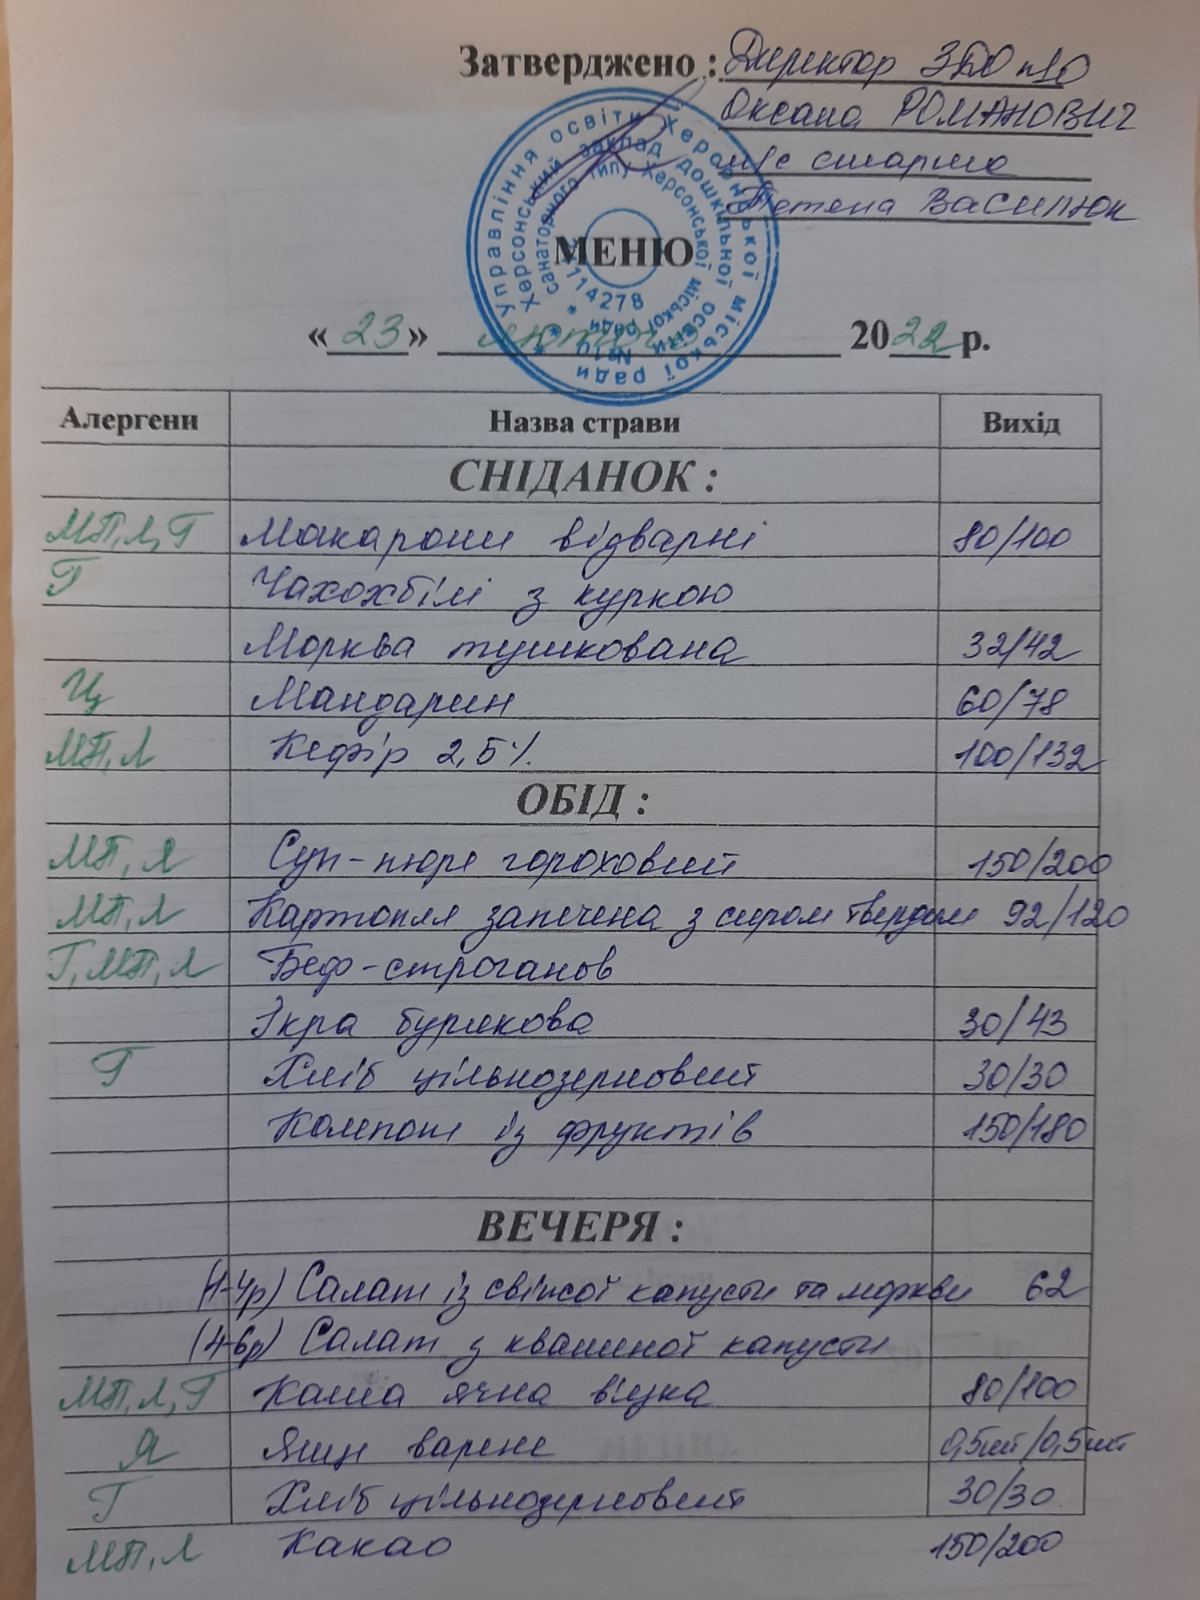 Затверджено : Директор ЗДО №10
Оксана РОМАНОВИЧ
м/с старша
Тетяна ВАСИЛЮК
Управління освіти Херсонської міської ради
Херсонський заклад дошкільної освіти №10
санаторного типу Херсонської міської ради
114278
МЕНЮ
« 23 » лютого 2022 р.
Алергени Назва страви Вихід
СНІДАНОК :
МП, Л, Г Макарони відварні 80/100
Г Чахохбілі з куркою
Морква тушкована 32/42
Ц Мандарин 60/78
МП, Л Кефір 2,5% 100/132
ОБІД :
МП, Л Суп-пюре гороховий 150/200
МП, Л Картопля запечена з сиром твердим 92/120
Г, МП, Л Беф-строганов
Ікра бурякова 30/43
Г Хліб цільнозерновий 30/30
Компот із фруктів 150/180
ВЕЧЕРЯ :
(1-4р) Салат із свіжої капусти та моркви 62
(4-6р) Салат з квашеної капусти
МП, Л, Г Каша ячна в'язка 80/100
Я Яйце варене 0,5шт/0,5шт
Г Хліб цільнозерновий 30/30
МП, Л Какао 150/200